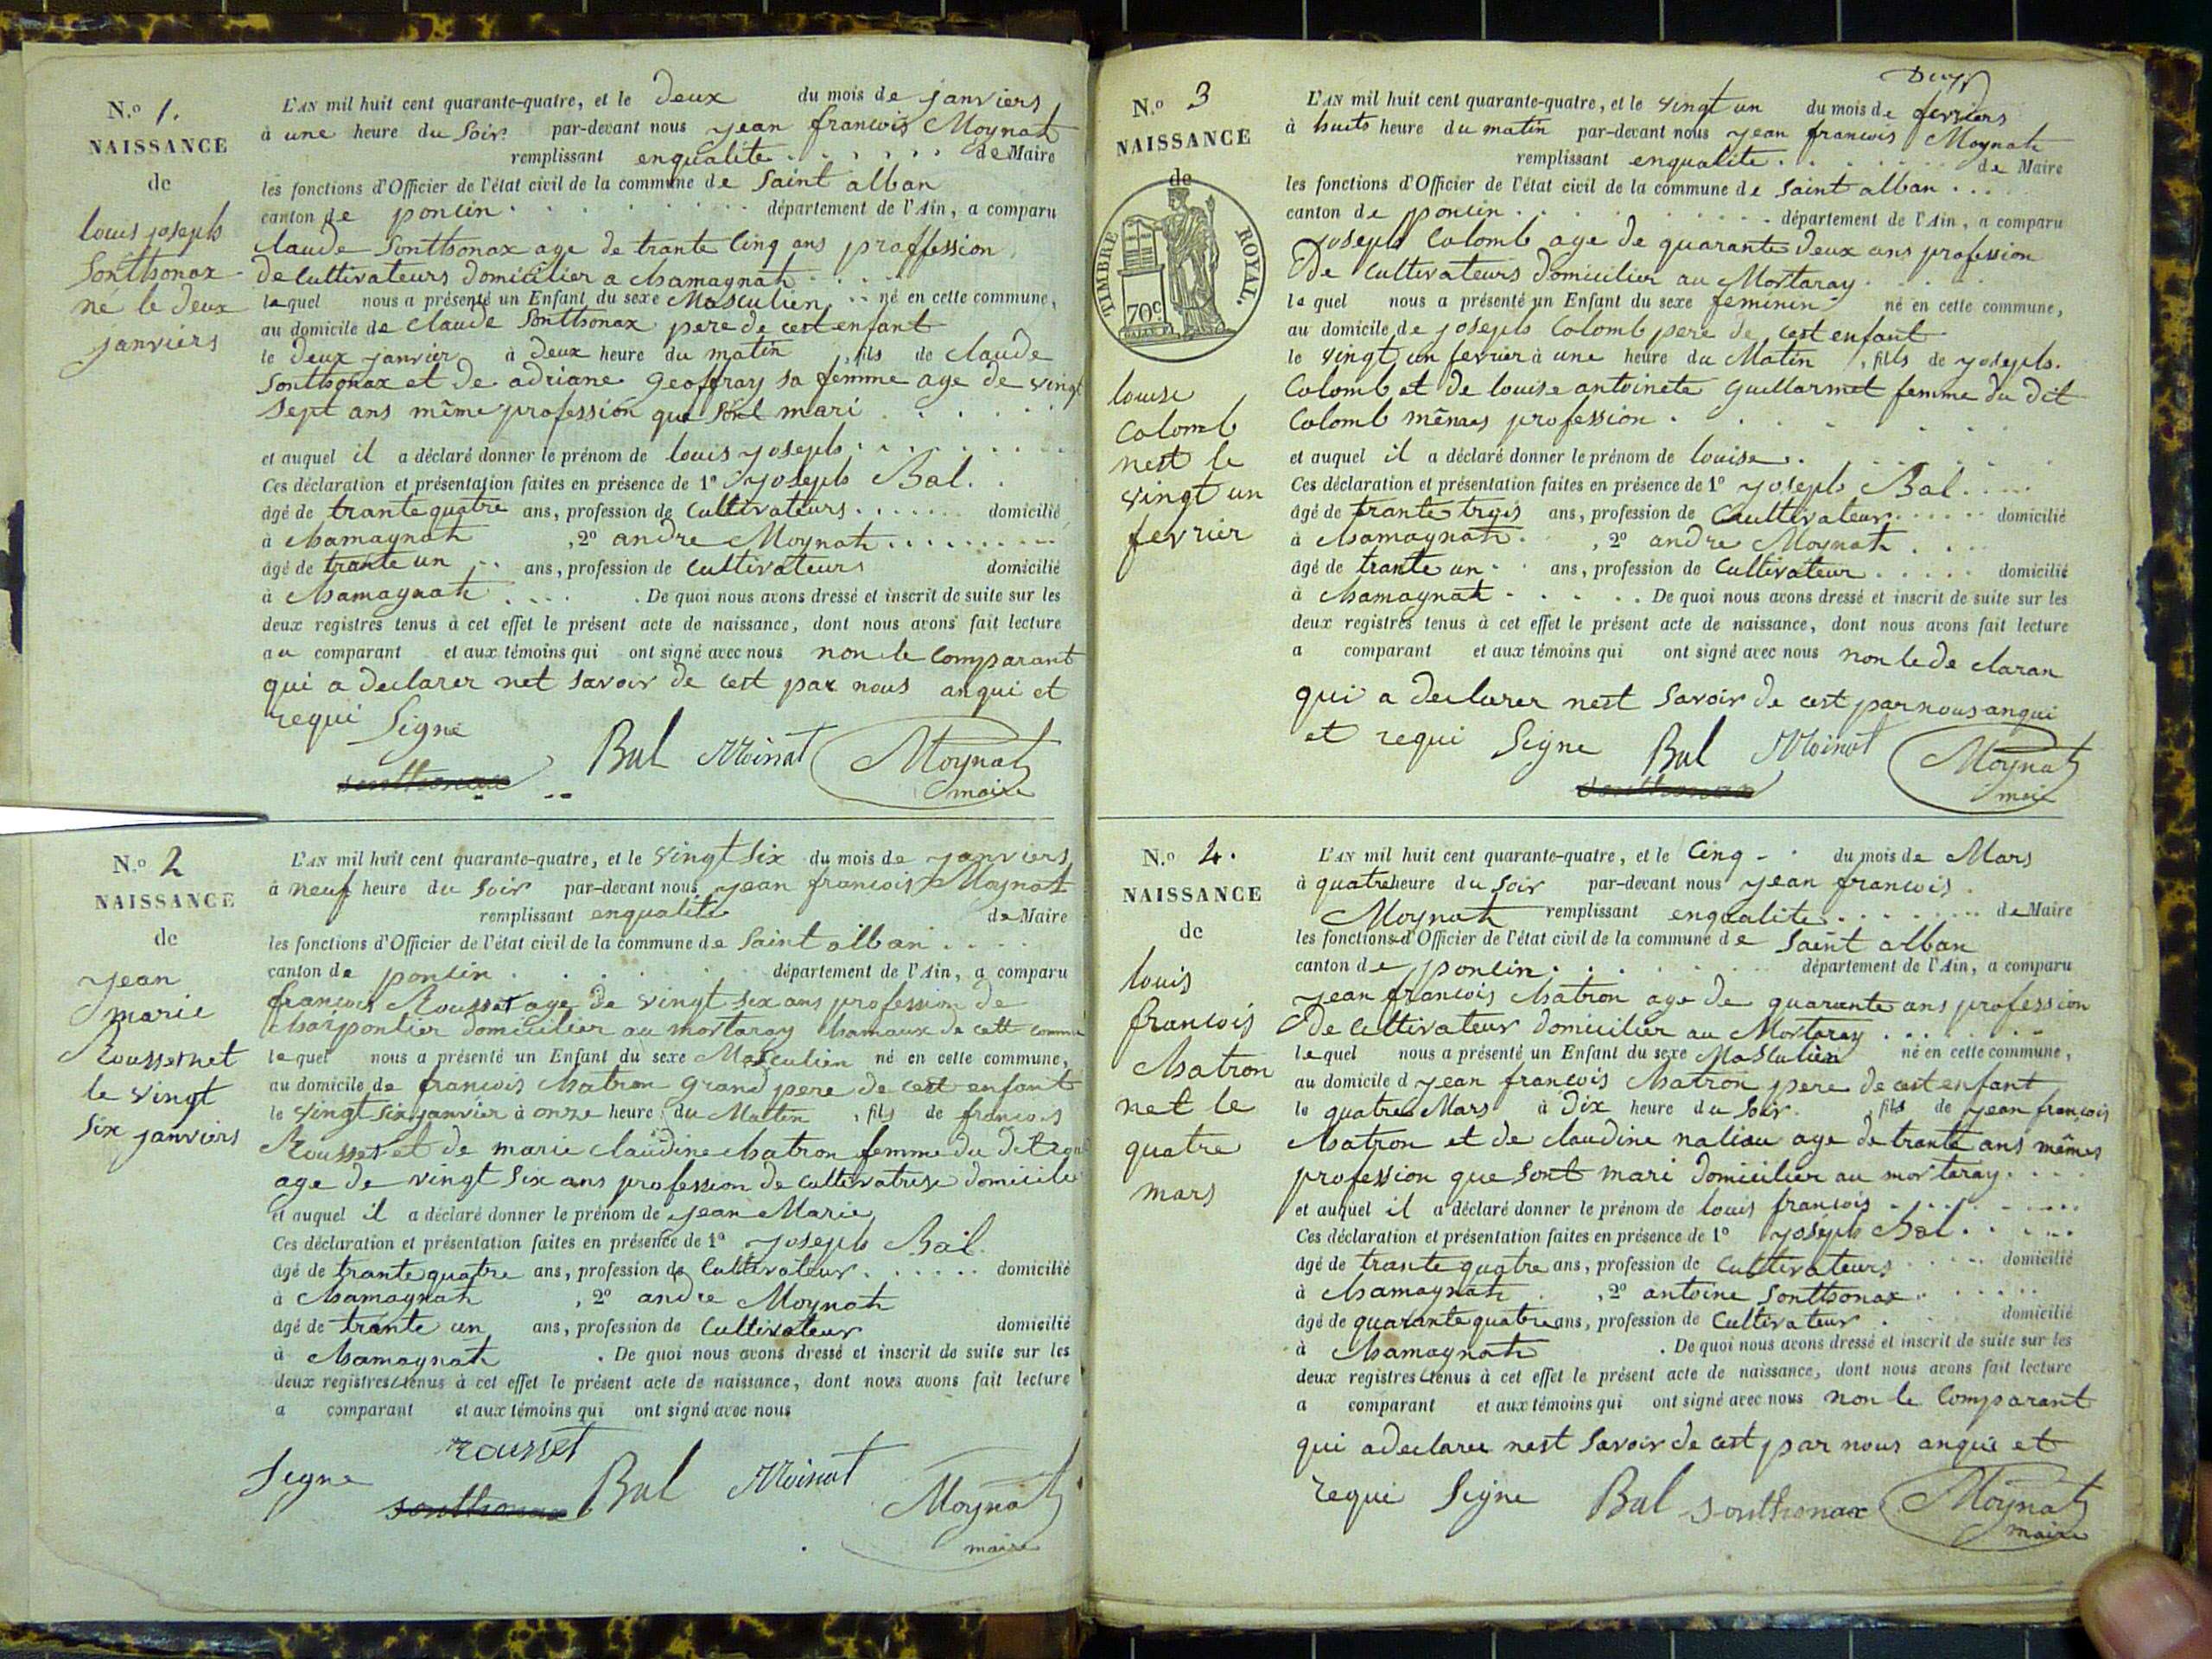 N.o 1.
NAISSANCE
de
louis joseph
Sonthonax
né le deux
janviers
L'AN mil huit cent quarante-quatre, et le deux du mois de janviers
à une heure du Soir par-devant nous jean francois Moynat
remplissant enqualite de Maire
les fonctions d'Officier de l'état civil de la commune de Saint alban
canton de poncin département de l'Ain, a comparu
Claude Sonthonax age de trante Cinq ans proffession
de Cultivateurs domicilier a Chamagnat
lequel nous a présenté un Enfant du sexe Masculien né en cette commune,
au domicile de Claude Sonthonax pere de cest enfant
le deux janvier à deux heure du matin , fils de Claude
Sonthonax et de adriane Geoffray sa femme age de vingt
Sept ans même profession que Sont mari
et auquel il a déclaré donner le prénom de louis joseph
Ces déclaration et présentation faites en présence de 1º joseph Bal.
âgé de trante quatre ans, profession de Cultivateurs domicilié
à Chamagnat , 2º andre Moynat
âgé de trante un ans, profession de Cultivateurs domicilié
à Chamagnat . De quoi nous avons dressé et inscrit de suite sur les
deux registres tenus à cet effet le présent acte de naissance, dont nous avons fait lecture
au comparant et aux témoins qui ont signé avec nous non le Comparant
qui a declarer net Savoir de cest par nous anqui et
requi Signe
Bal Moinat Moynat
sonthonax maire
N.o 2
NAISSANCE
de
jean
marie
Rousset net
le vingt
Six janviers
L'AN mil huit cent quarante-quatre, et le vingt Six du mois de janviers
à neuf heure du Soir par-devant nous jean francois Moynat
remplissant enqualite de Maire
les fonctions d'Officier de l'état civil de la commune de Saint alban
canton de poncin département de l'Ain, a comparu
francois Rousset age de vingt Six ans profession de
Charpontier domicilier au mortaray hamaux de cett comme
lequel nous a présenté un Enfant du sexe Masculien né en cette commune,
au domicile de francois Chatron Grand pere de cest enfant
le vingt Six janvier à onze heure du Matin , fils de francois
Rousset et de marie Claudine Chatron femme du dit
age de vingt Six ans profession de Cultivatrise domicile
et auquel il a déclaré donner le prénom de jean Marie
Ces déclaration et présentation faites en présence de 1º joseph Bal.
âgé de trante quatre ans, profession de Cultivateur domicilié
à Chamagnat , 2º andre Moynat
âgé de trante un ans, profession de Cultivateur domicilié
à Chamagnat . De quoi nous avons dressé et inscrit de suite sur les
deux registres tenus à cet effet le présent acte de naissance, dont nous avons fait lecture
a comparant et aux témoins qui ont signé avec nous
rousset
Signe Bal Moinat Moynat
sonthonax maire
N.o 3
NAISSANCE
de
TIMBRE ROYAL.
70c
louise
Colomb
nest le
vingt un
fevrier
L'AN mil huit cent quarante-quatre, et le vingt un du mois de fevriers
à huits heure du matin par-devant nous jean francois Moynat
remplissant enqualite de Maire
les fonctions d'Officier de l'état civil de la commune de Saint alban
canton de poncin département de l'Ain, a comparu
joseph Colomb age de quarante deux ans profession
De Cultivateurs domicilier au Mortaray
le quel nous a présenté un Enfant du sexe feminin né en cette commune,
au domicile de joseph Colomb pere de cest enfant
le vingt un fevrier à une heure du Matin , fils de joseph
Colomb et de louise antoinete Guillarmet femme du dit
Colomb mêmes profession
et auquel il a déclaré donner le prénom de louise
Ces déclaration et présentation faites en présence de 1º joseph Bal
âgé de trante trois ans, profession de Cultivateur domicilié
à Chamagnat , 2º andre Moynat
âgé de trante un ans, profession de Cultivateur domicilié
à Chamagnat . De quoi nous avons dressé et inscrit de suite sur les
deux registres tenus à cet effet le présent acte de naissance, dont nous avons fait lecture
a comparant et aux témoins qui ont signé avec nous non le de claran
qui a declarer nest Savoir de cest par nous anqui
et requi Signe Bal Moinat Moynat
sonthonax maire
N.o 4.
NAISSANCE
de
louis
francois
Chatron
net le
quatre
mars
L'AN mil huit cent quarante-quatre, et le Cinq du mois de Mars
à quatre heure du Soir par-devant nous jean francois
Moynat remplissant enqualite de Maire
les fonctions d'Officier de l'état civil de la commune de Saint alban
canton de poncin département de l'Ain, a comparu
jean francois Chatron age de quarante ans profession
De Cultivateur domicilier au Mortaray
lequel nous a présenté un Enfant du sexe Masculien né en cette commune,
au domicile d jean francois Chatron pere de cest enfant
le quatre Mars à Dix heure du Soir , fils de jean françois
Chatron et de Claudine naliau age de trante ans mêmes
profession que Sont mari domicilier au mortaray
et auquel il a déclaré donner le prénom de louis francois
Ces déclaration et présentation faites en présence de 1º joseph Bal
âgé de trante quatre ans, profession de Cultivateurs domicilié
à Chamagnat , 2º antoine Sonthonax
âgé de quarante quatre ans, profession de Cultivateur domicilié
à Chamagnat . De quoi nous avons dressé et inscrit de suite sur les
deux registres tenus à cet effet le présent acte de naissance, dont nous avons fait lecture
a comparant et aux témoins qui ont signé avec nous non le Comparant
qui a declarer nest Savoir de cest par nous anqui et
requi Signe Bal sonthonax Moynat
maire